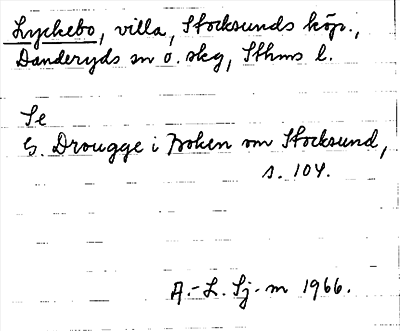 Lyckebo, villa, Stocksunds köp.,
Danderyds sn o. skg, Sthms l.
Se
G. Drougge i Boken om Stocksund,
s. 104.
A.-L. Sj-m 1966.